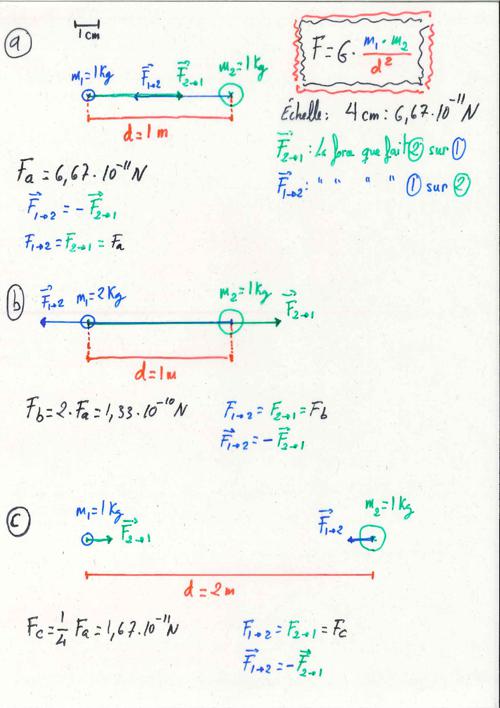 1 cm
a
F = G · m₁ · m₂ / d²
m₁ = 1 Kg F⃗₁→₂ F⃗₂→₁ m₂ = 1 Kg
d = 1 m
Échelle: 4 cm : 6,67 · 10⁻¹¹ N
F⃗₂→₁ : La force que fait ② sur ①
F⃗₁→₂ : " " " " ① sur ②
Fa = 6,67 · 10⁻¹¹ N
F⃗₁→₂ = - F⃗₂→₁
F₁→₂ = F₂→₁ = Fa
b
F⃗₁→₂ m₁ = 2 Kg m₂ = 1 Kg F⃗₂→₁
d = 1 m
Fb = 2 · Fa = 1,33 · 10⁻¹⁰ N F₁→₂ = F₂→₁ = Fb
F⃗₁→₂ = - F⃗₂→₁
c
m₁ = 1 Kg F⃗₂→₁ F⃗₁→₂ m₂ = 1 Kg
d = 2 m
Fc = 1/4 Fa = 1,67 · 10⁻¹¹ N F₁→₂ = F₂→₁ = Fc
F⃗₁→₂ = - F⃗₂→₁